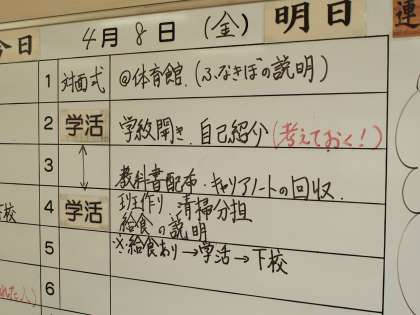 今日
4月8日 (金) 明日
連
1 対面式 @体育館.(ふなきぼの説明)
2 学活 学級開き.自己紹介(考えておく!)
3
教科書配布・キャリアノートの回収.
4 学活 班作り 清掃分担
給食の説明
5 ※給食あり→学活→下校
6
下校